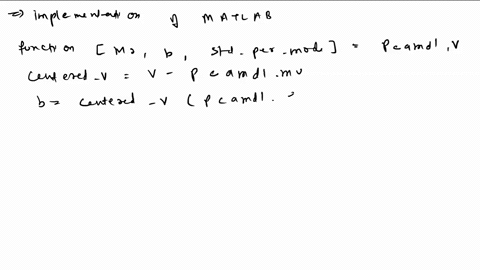 => implementation of MATLAB
function [ Ms, b, std_per_mode ] = pcamdl, V
centered_V = V - pcamdl.mu
b = centered_V ( pcamdl.